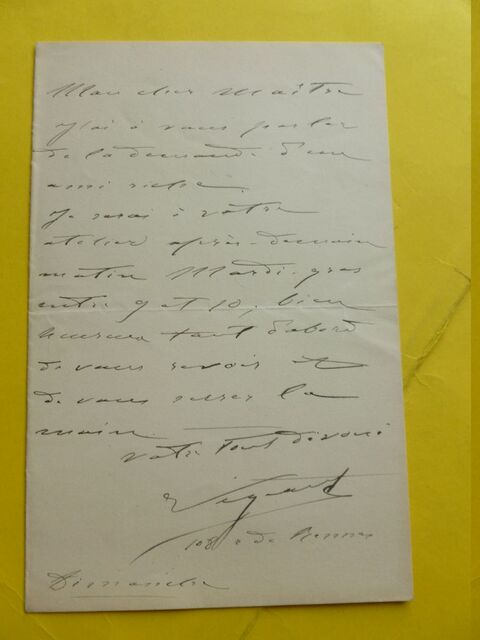 Mon cher Maître
J'ai à vous parler
de la demande d'un
ami riche.
Je serai à votre
atelier après-demain
matin Mardi-gras
entre 9 et 10, bien
heureux tout d'abord
de vous revoir et
de vous serrer la
main.
Votre tout dévoué
108 r de Rennes
Dimanche